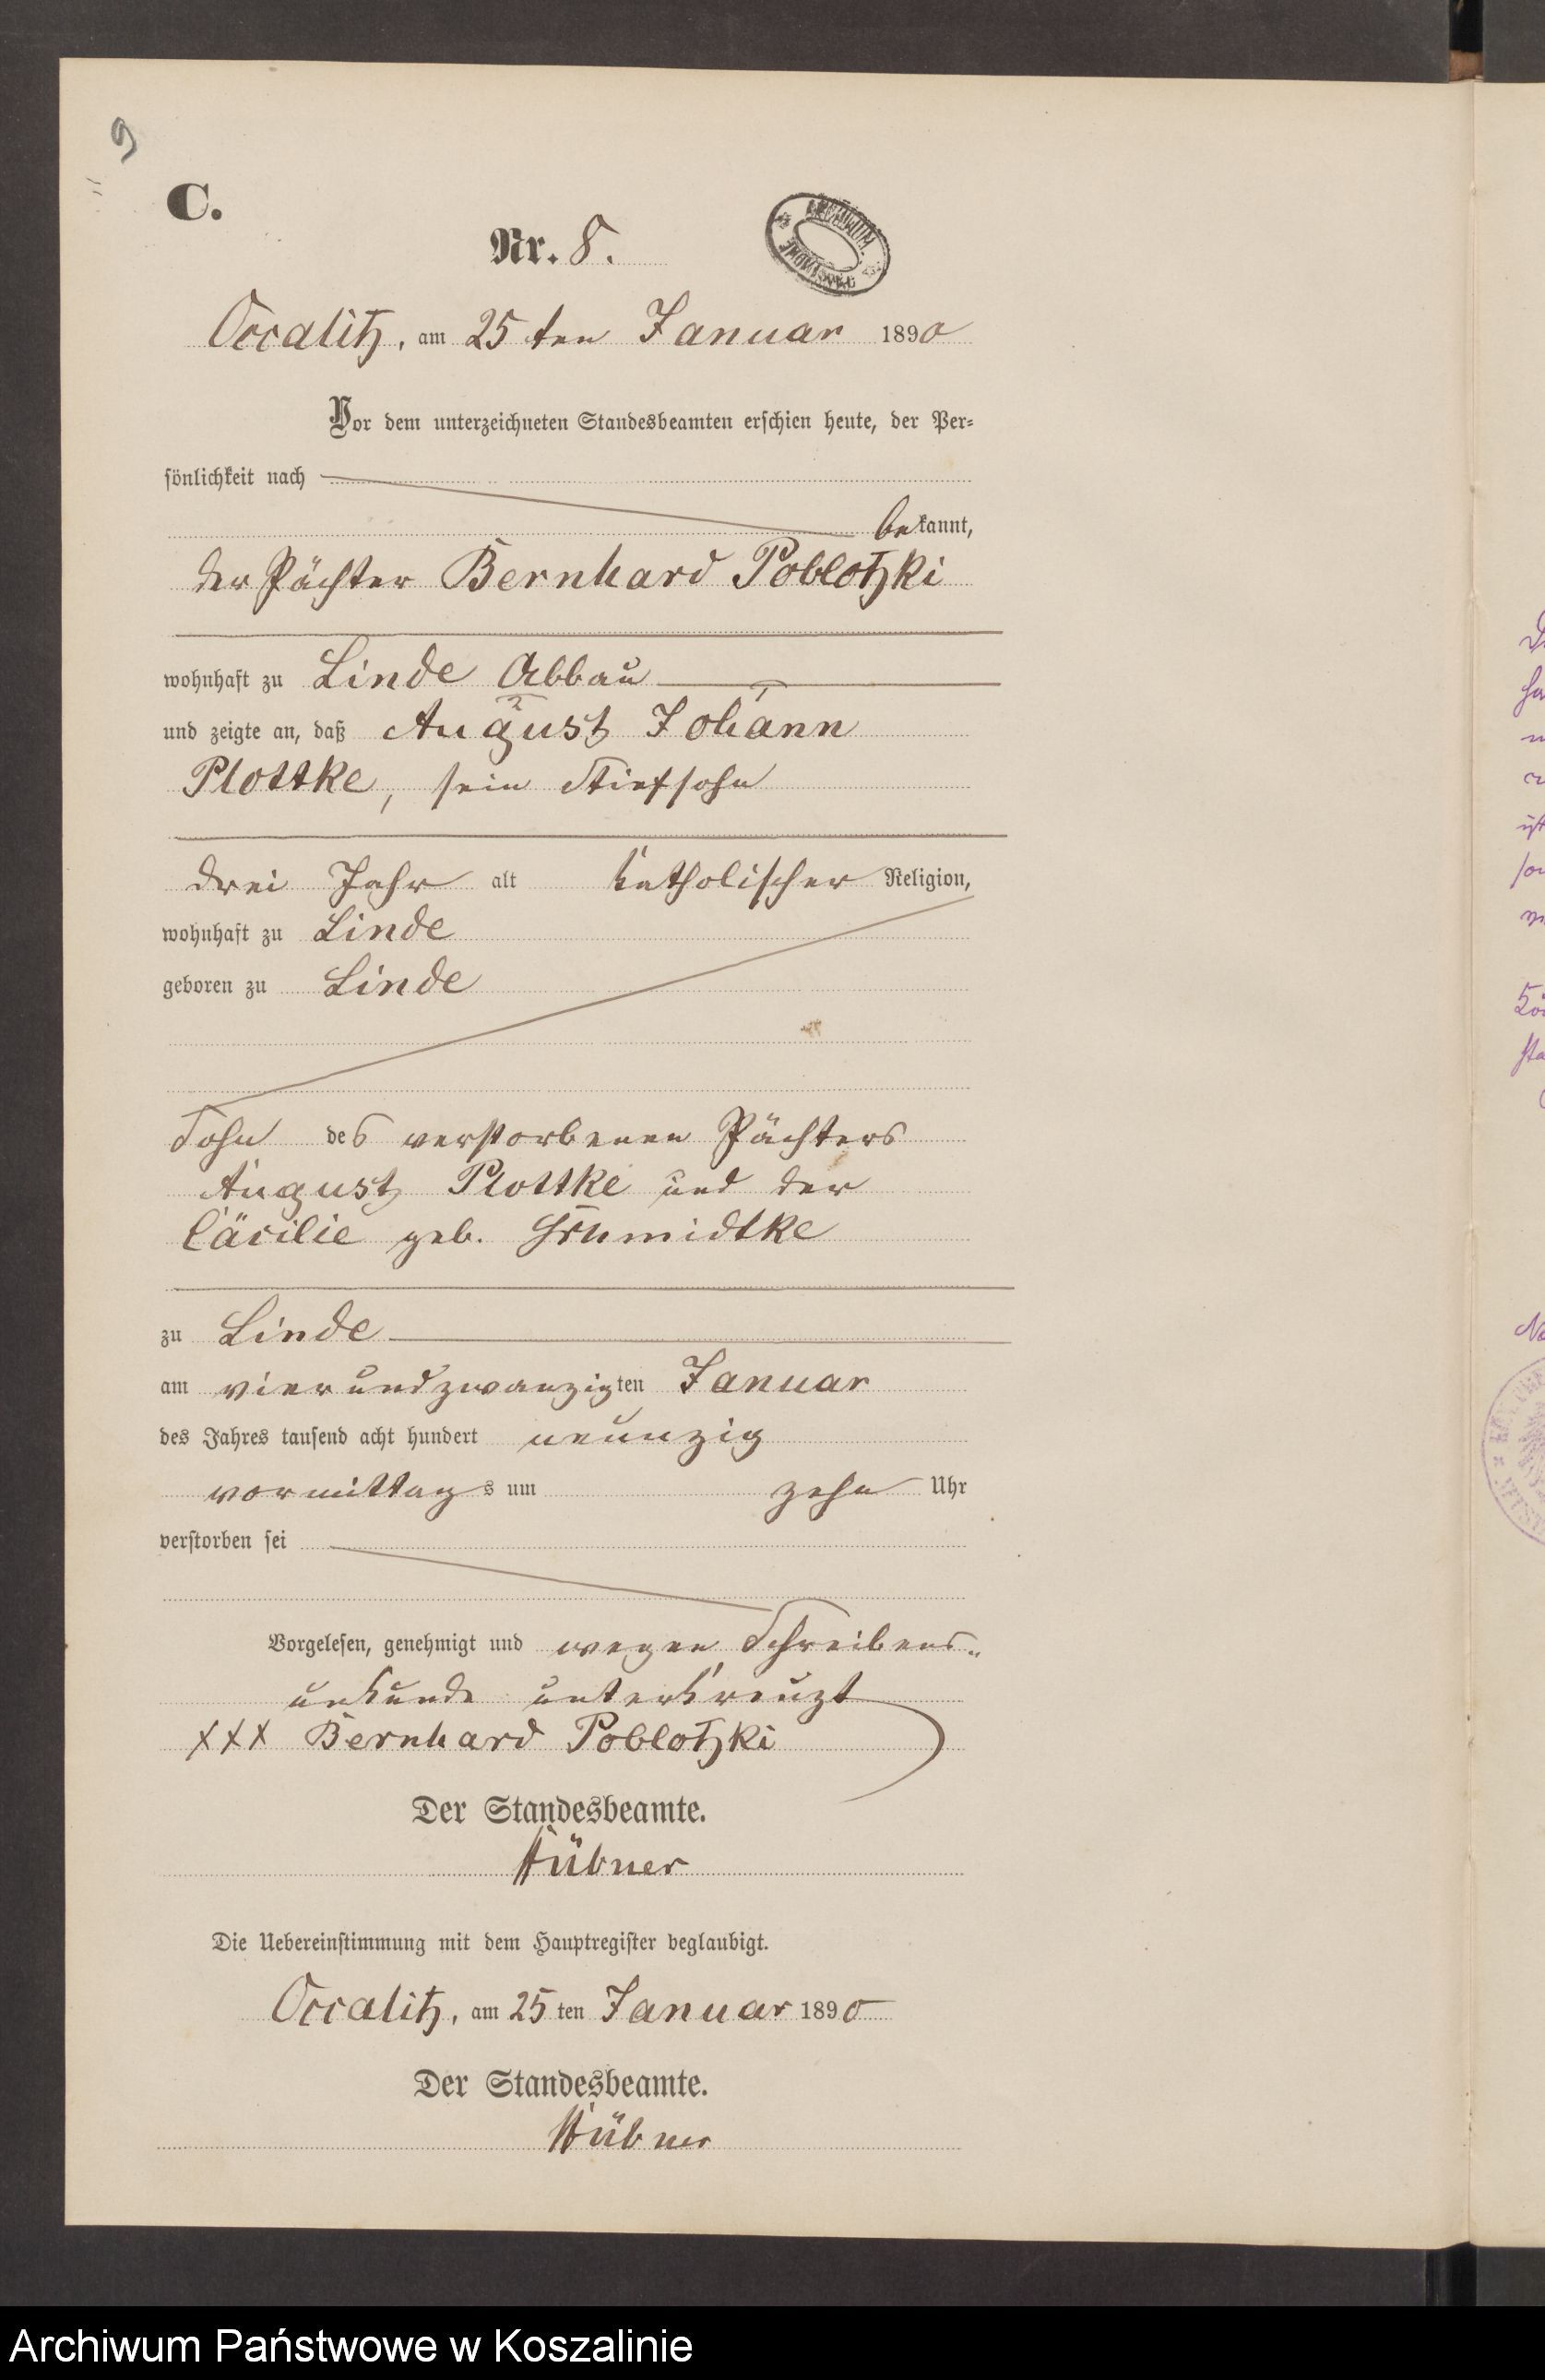 9
C.
Nr. 8.
Occalitz, am 25 ten Januar 1890
Vor dem unterzeichneten Standesbeamten erschien heute, der Per-
sönlichkeit nach
bekannt,
der Pächter Bernhard Poblotzki
wohnhaft zu Linde Abbau
und zeigte an, daß August Johann
Plottke, sein Stiefsohn
drei Jahr alt katholischer Religion,
wohnhaft zu Linde
geboren zu Linde
Sohn des verstorbenen Pächters
August Plottke und der
Cäcilie geb. Schmidtke
zu Linde
am vierundzwanzigten Januar
des Jahres tausend acht hundert neunzig
vormittags um zehn Uhr
verstorben sei
Vorgelesen, genehmigt und wegen Schreibens-
unkunde unterkreuzt
XXX Bernhard Poblotzki
Der Standesbeamte.
Hübner
Die Uebereinstimmung mit dem Hauptregister beglaubigt.
Occalitz, am 25 ten Januar 1890
Der Standesbeamte.
Hübner
Archiwum Państwowe w Koszalinie